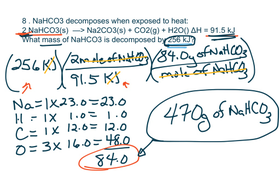 8 . NaHCO3 decomposes when exposed to heat:
2 NaHCO3(s) ---> Na2CO3(s) + CO2(g) + H2O(l) ΔH = 91.5 kJ
What mass of NaHCO3 is decomposed by 256 kJ?
(256 KJ) (2 mole of NaHCO3 / 91.5 KJ) (84.0 g of NaHCO3 / mole of NaHCO3)
Na = 1 X 23.0 = 23.0
H = 1 X 1.0 = 1.0
C = 1 X 12.0 = 12.0
O = 3 X 16.0 = 48.0
84.0
470 g of NaHCO3